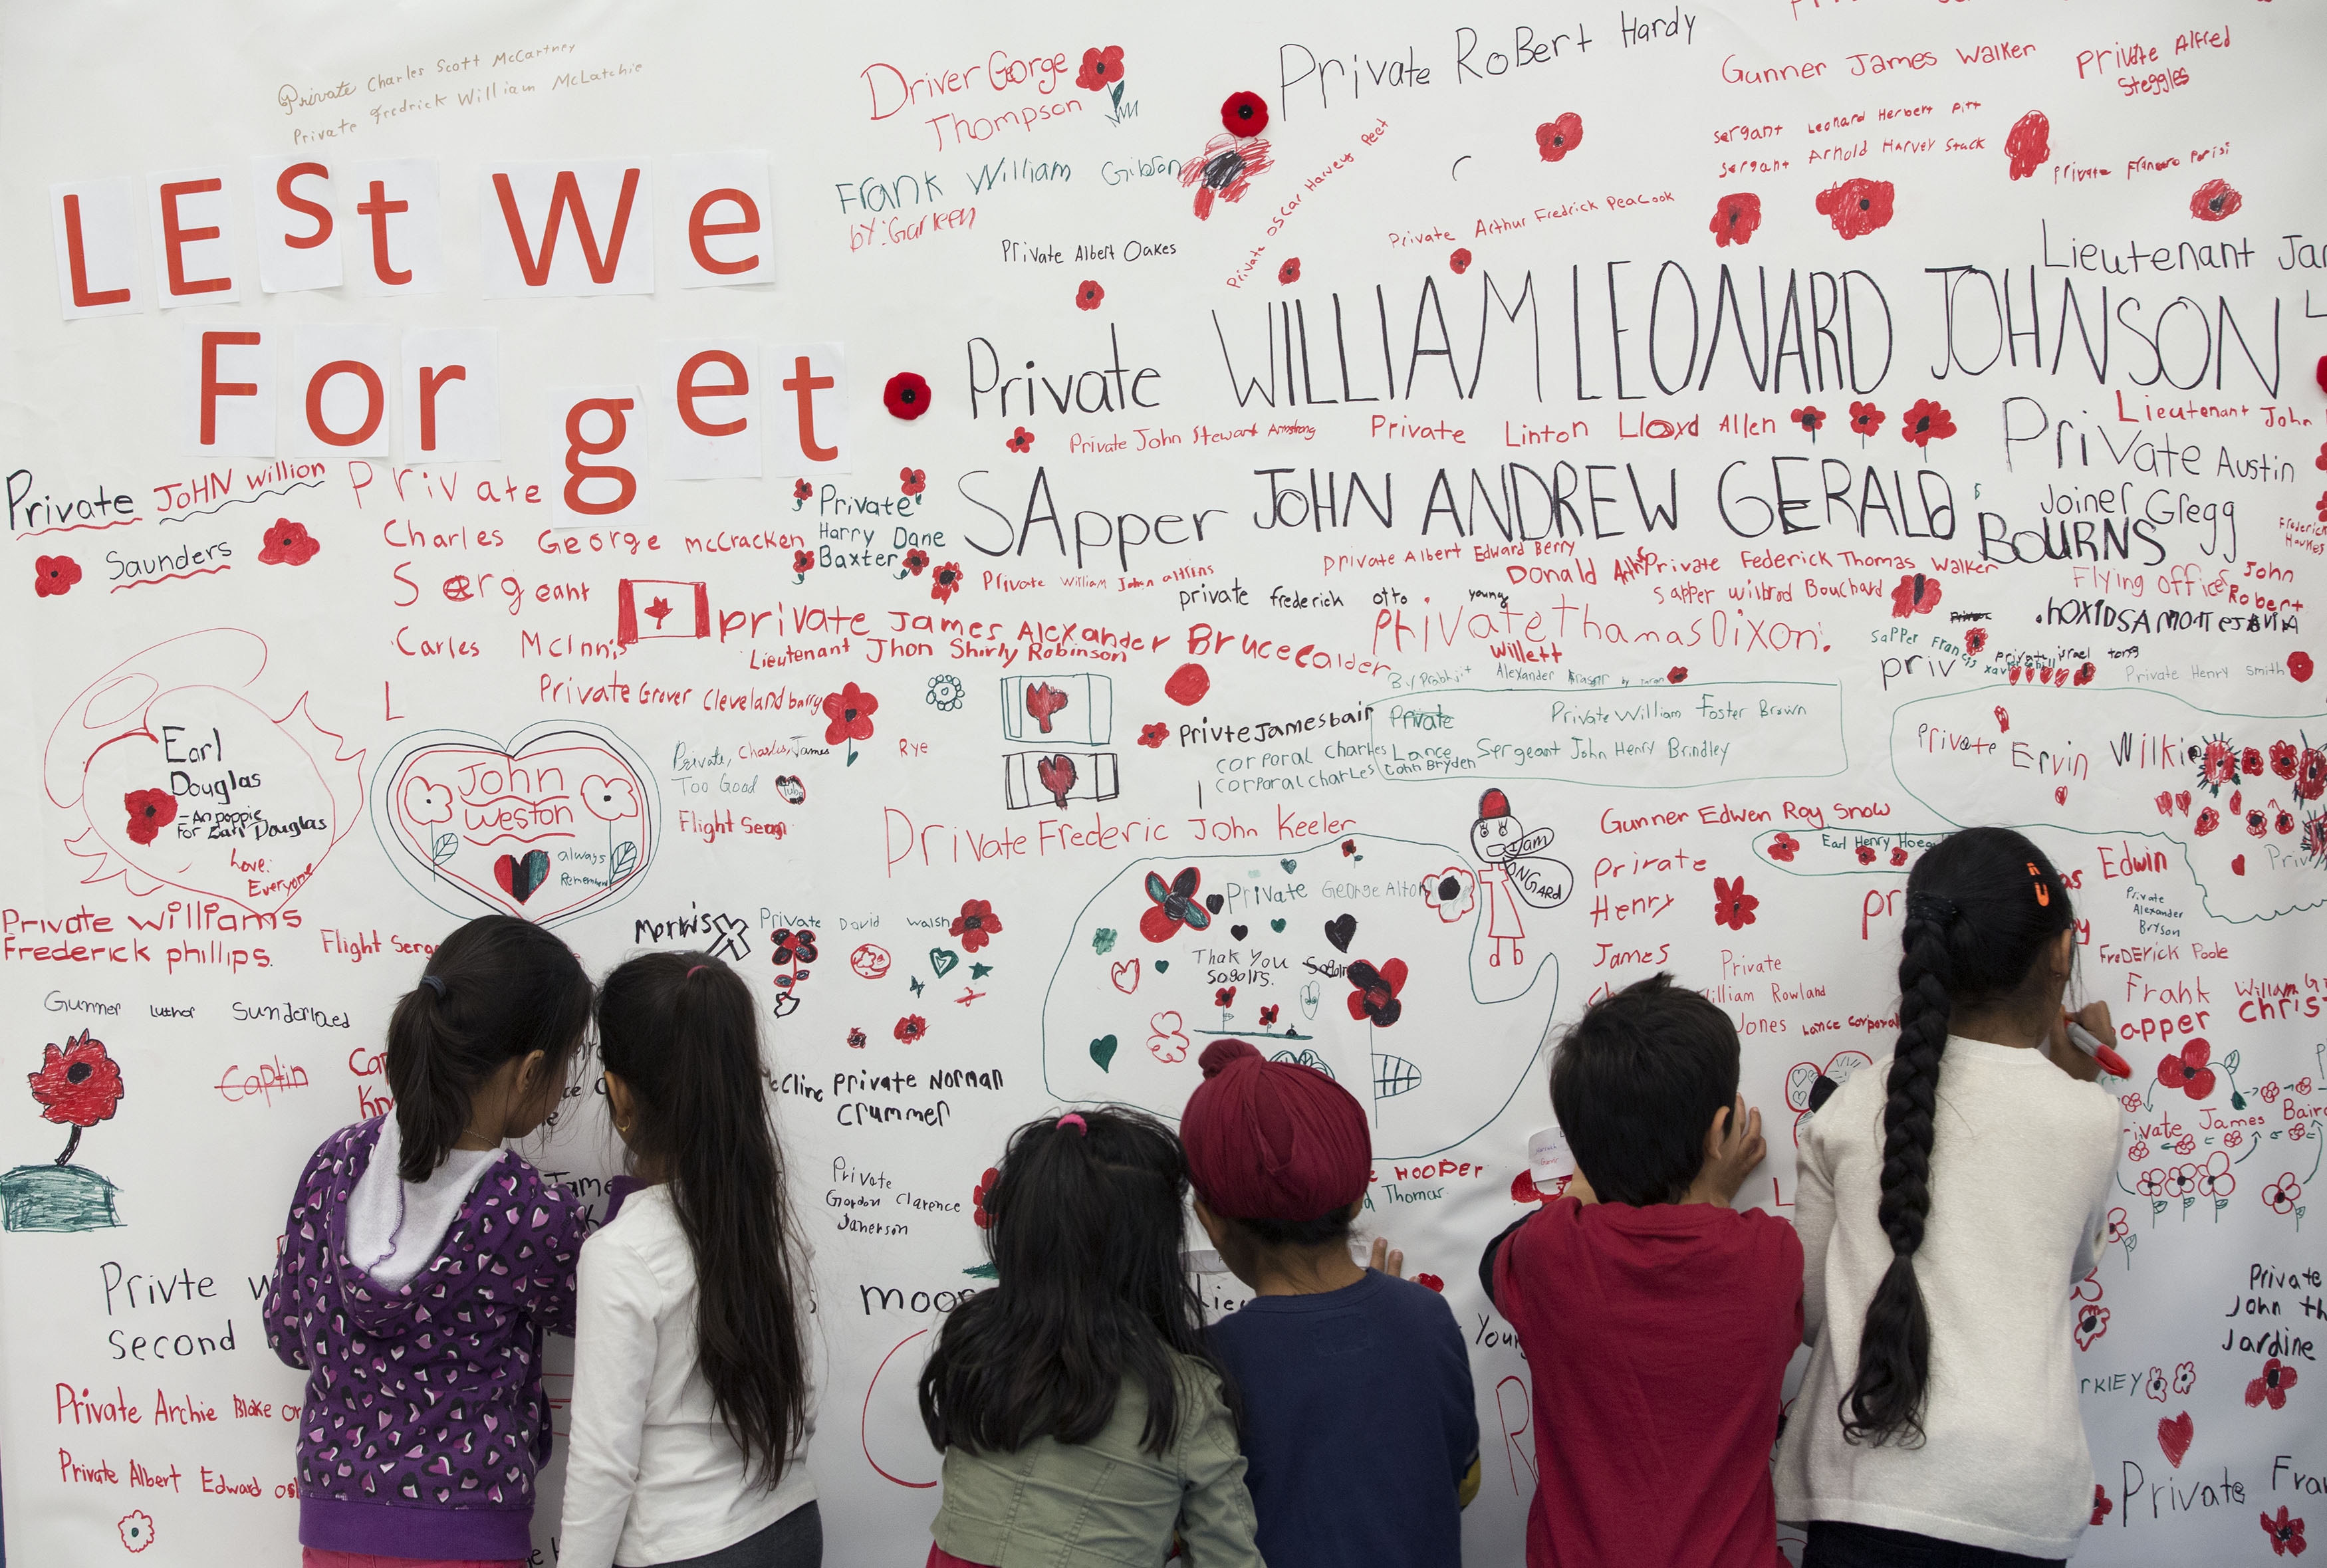 Private Charles Scott McCartney
Private Fredrick William McLatchie
LESt We
Forget
Driver Gorge
Thompson
Frank William Gibson
by: Garleen
Private Albert Oakes
Private RoBert Hardy
Private Oscar Harveus Peet
Private Arthur Fredrick Peacook
Gunner James Walker
Private Alfred
Steggles
sergant Leonard Herbert Pitt
sergant Arnold Harvey Stuck
Lieutenant Jar
Private WILLIAM LEONARD JOHNSON
Private John Stewart Armstrong
Private Linton Lloyd Allen
Lieutenant John
Private Austin
Joiner Gregg
SApper JOHN ANDREW GERALD
BOURNS
Private JoHN willion
Saunders
Private
Charles George McCracken
Sergeant
Carles McInnis
Private
Harry Dane
Baxter
Private William John
private Albert Edward Berry
Donald
Private Federick Thomas Walker
private frederick otto young
Sapper Wilbrod Bouchard
Flying officer John
Robert
private James Alexander Bruce Calder
Lieutenant Jhon Shirly Robinson
Private Thamas Dixon.
Willett
Sapper Francis
private israel tong
priv
Private Henry Smith
L
Private Grover Cleveland barry
Rye
By Prabhjit
Alexander
Private
Private William Foster Brown
Lance Sergeant John Henry Brindley
Privte James bair
corporal Charles
corporal Charles
John Bryden
Private Ervin Wilkie
Earl
Douglas
- An poppie
For Earl Douglas
Love:
Everyone
John
Weston
always
Remember
Private, Charles, James
Too Good
Flight Sergn
Private Frederic John Keeler
I am
ONGArd
Gunner Edwen Ray Snow
Earl Henry
Private
Henry
James
Edwin
Private
Alexander
Bryson
FreDERick Poole
Frank William Gi
apper Chris
Private Williams
Frederick phillips.
Flight Serg
Morris
Private David Walsh
Private George Alton
Thak You
Sogolrs.
Private
illiam Rowland
Jones Lance Corporal
Gunner Luther Sunderlaed
Captin
Private Norman
Crummer
Private
Gordon Clarence
Janerson
HOOPer
Thomas
ivate James Baird
Privte W
second
Jame
moor
Lieu
Your
Private
John th
Jardine
Private Archie Blake
Private Albert Edward
RKIEY
Private Fra